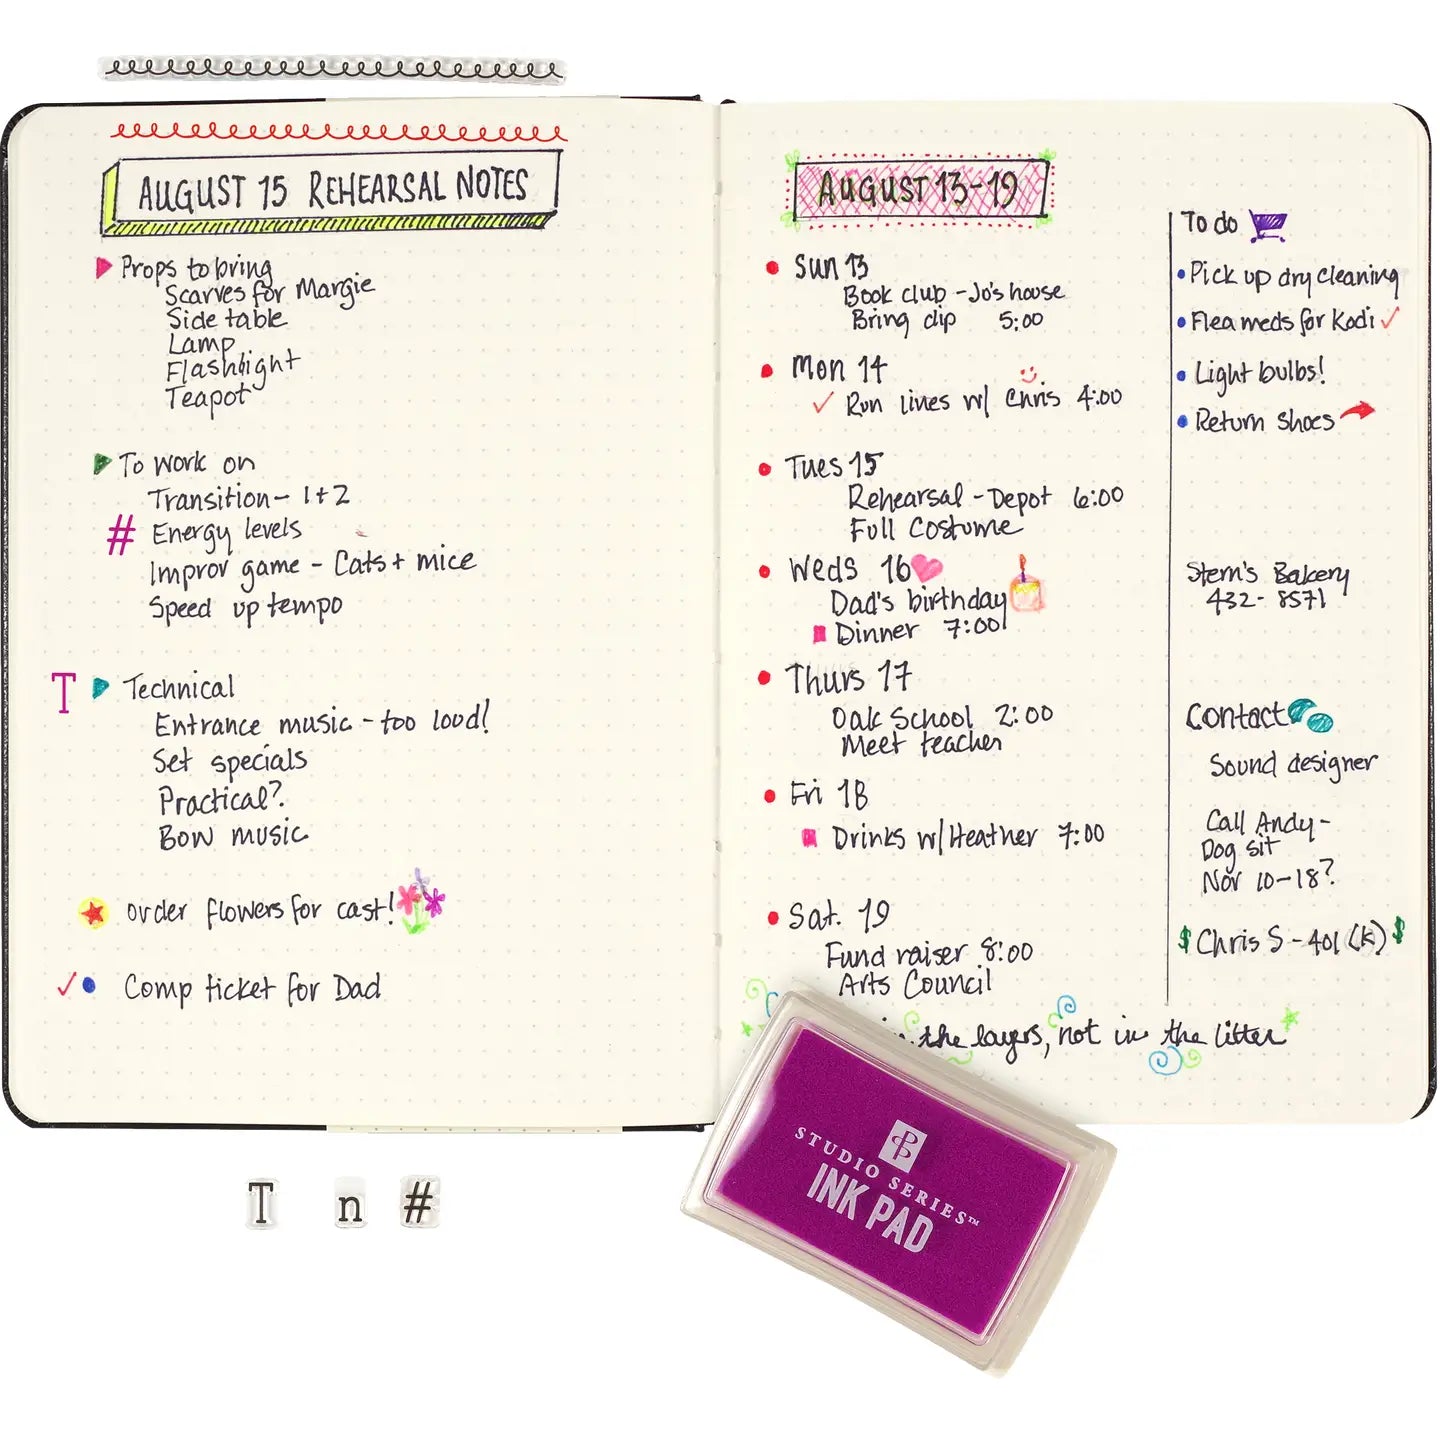 AUGUST 15 REHEARSAL NOTES
Props to bring
Scarves for Margie
Side table
Lamp
Flashlight
Teapot
To work on
Transition- 1+2
# Energy levels
Improv game - Cats + mice
Speed up tempo
T Technical
Entrance music - too loud!
Set specials
Practical?
Bow music
order flowers for cast!
✓ Comp ticket for Dad
AUGUST 13-19
Sun 13
Book club - Jo's house
Bring dip 5:00
Mon 14
✓ Run lines w/ Chris 4:00
Tues 15
Rehearsal - Depot 6:00
Full Costume
Weds 16
Dad's birthday
Dinner 7:00
Thurs 17
Oak School 2:00
Meet teacher
Fri 18
Drinks w/ Heather 7:00
Sat. 19
Fund raiser 8:00
Arts Council
To do
Pick up dry cleaning
Flea meds for Kodi ✓
Light bulbs!
Return shoes
Stern's Bakery
432-8571
Contact
Sound designer
Call Andy-
Dog sit
Nov 10-18?
$ Chris S - 401(k) $
the layers, not in the litter
T n #
STUDIO SERIES™
INK PAD